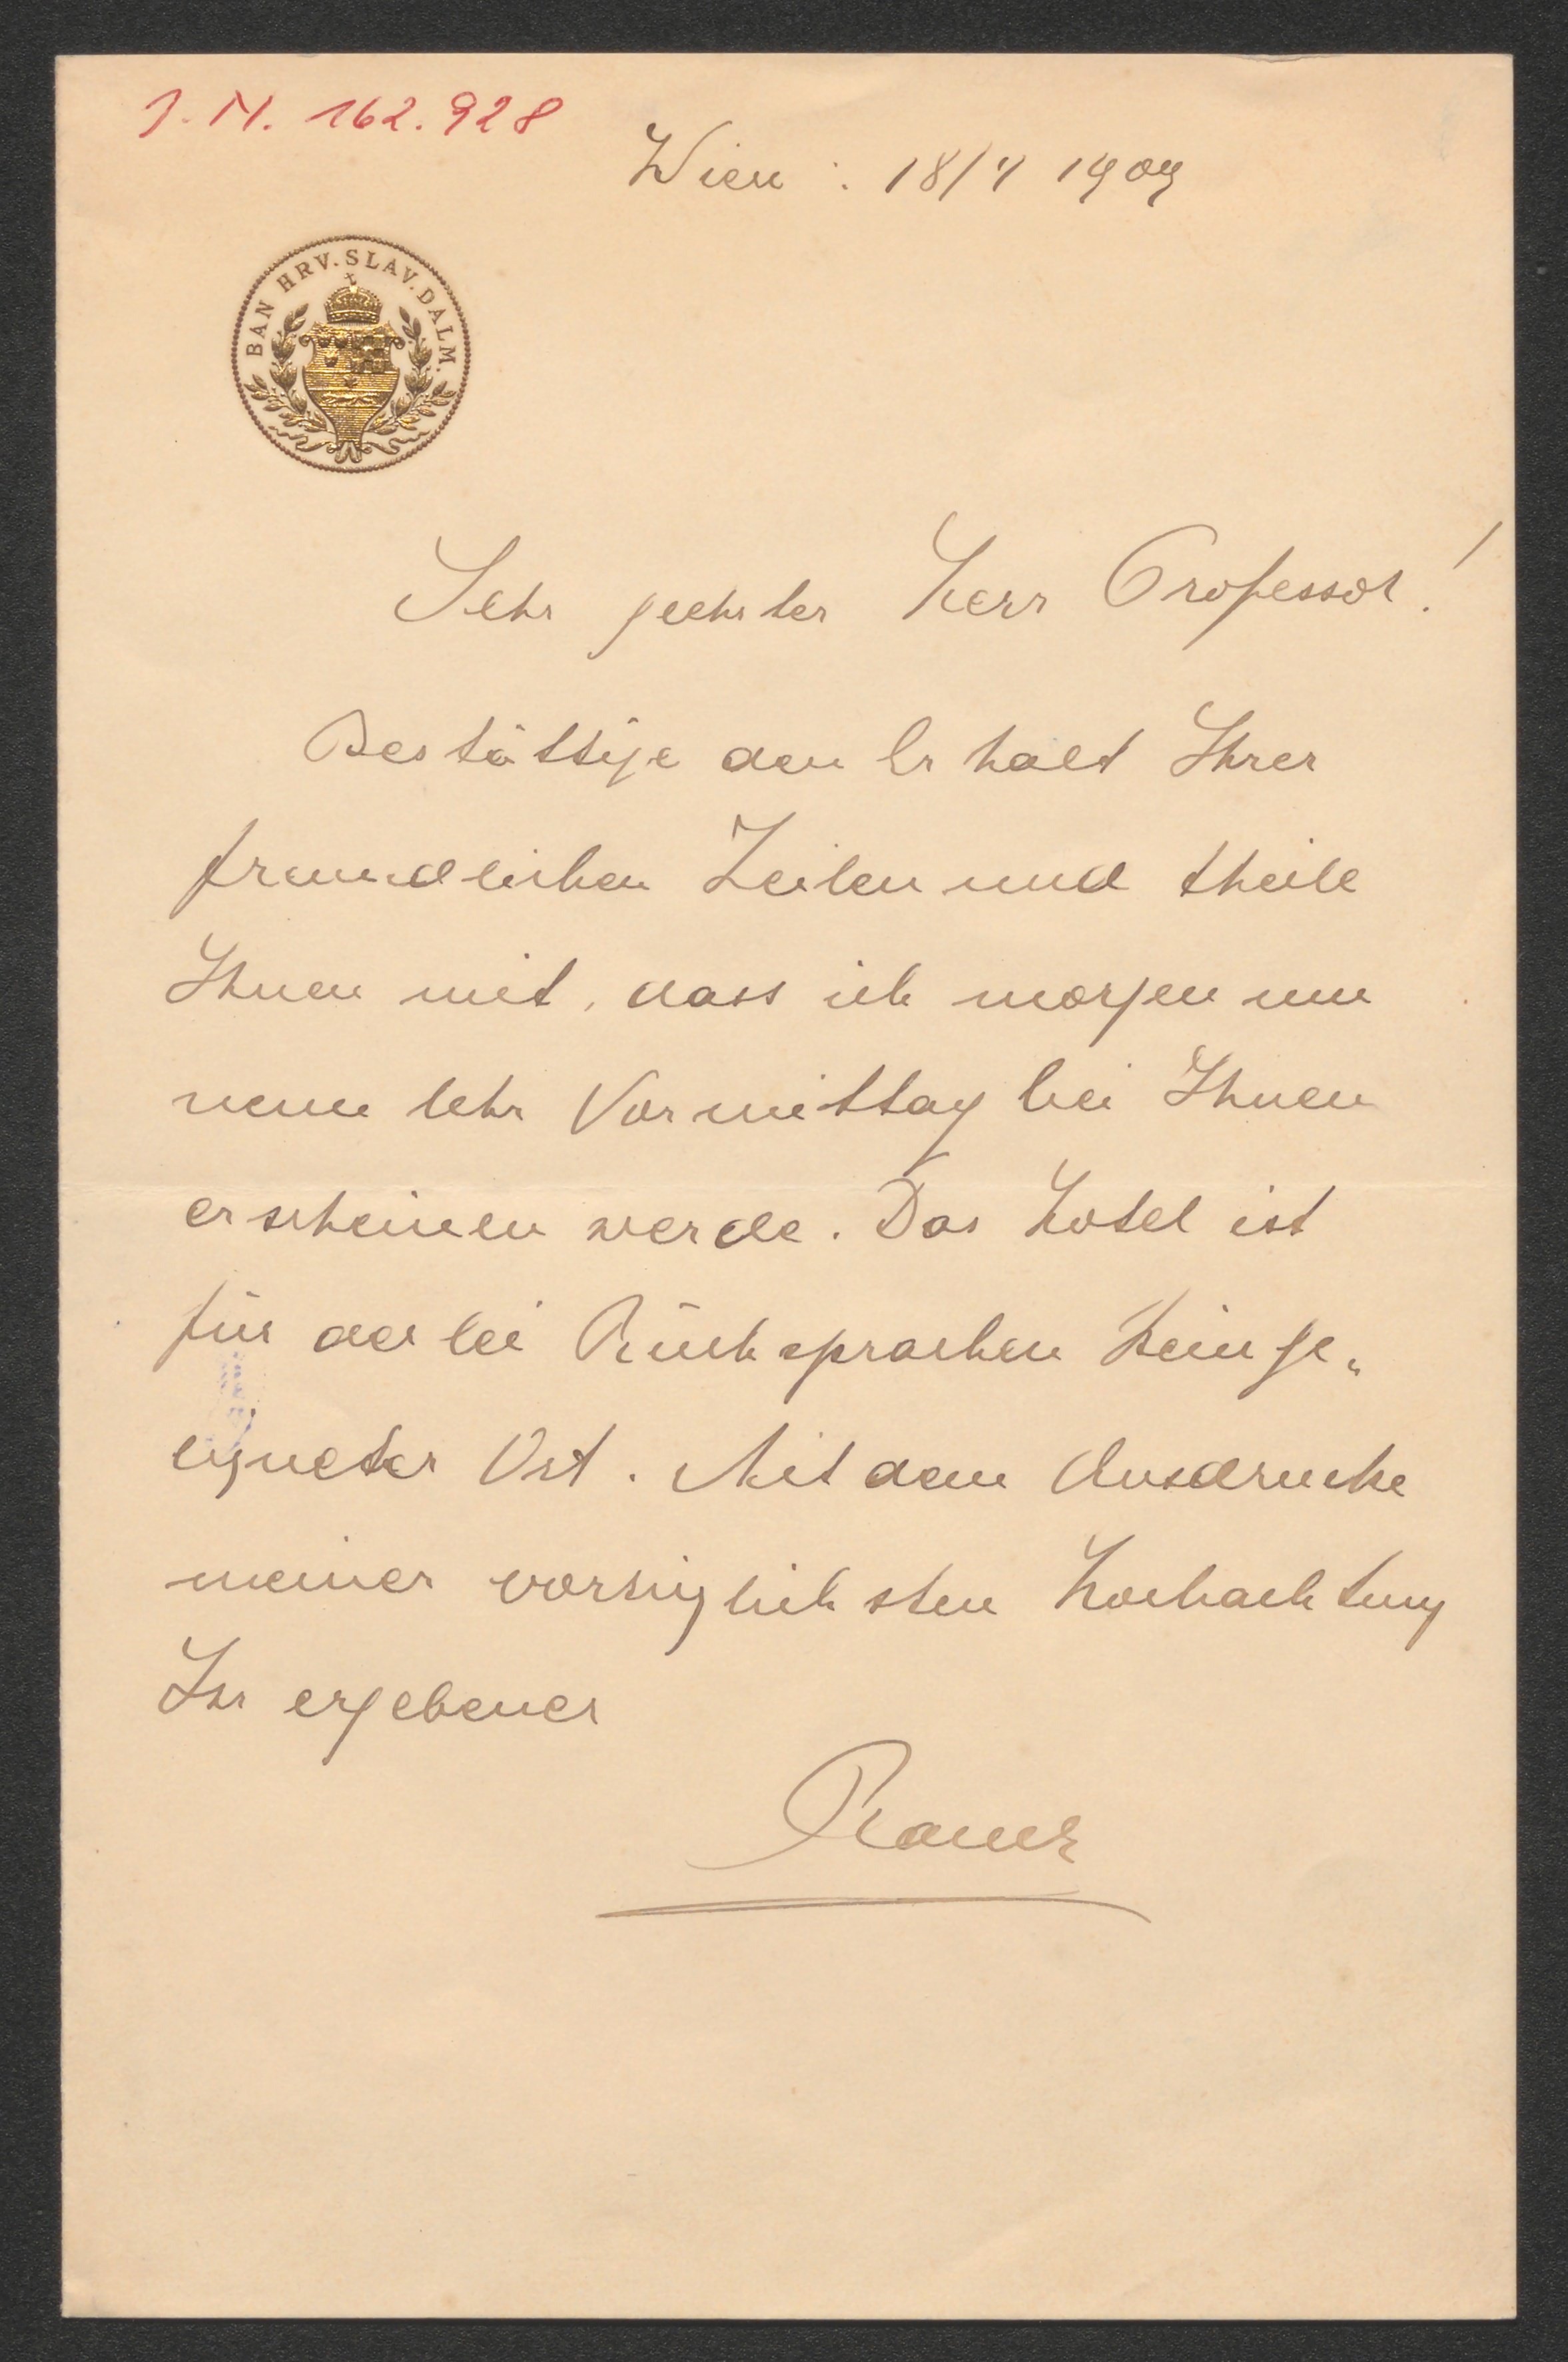 J.N. 162.928
Wien : 18/4 1909
BAN HRV. SLAV. DALM.
Sehr geehrter Herr Professor!
Bestättige den Erhalt Ihrer
freundlichen Zeilen und theile
Ihnen mit, dass ich morgen um
neun Uhr Vormittag bei Ihnen
erscheinen werde. Das Hotel ist
für derlei Rücksprachen kein ge„
eigneter Ort. Mit dem Ausdrucke
meiner vorzüglichsten Hochachtung
Ihr ergebener
Rauch